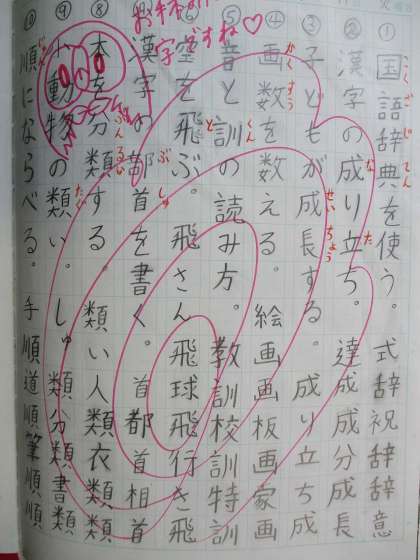 お手本
字ですね♡
① 国語辞典を使う。式辞祝辞辞意
こく ご じ てん
② 漢字の成り立ち。達成成分成長
な た
③ 子どもが成長する。成り立ち成
せいちょう
④ 画数を数える。絵画画板画家画
かくすう
⑤ 音と訓の読み方。教訓校訓特訓
くん
⑥ 堂を飛ぶ。飛さん飛球飛行き飛
と
漢字の部首を書く。首都首相首
ぶ しゅ
⑧ 本を分類する。類い人類衣類
ぶんるい
⑨ 小動物の類い。しゅ類分類書類
たぐ
⑩ 順にならべる。手順道順筆順順
じゅん